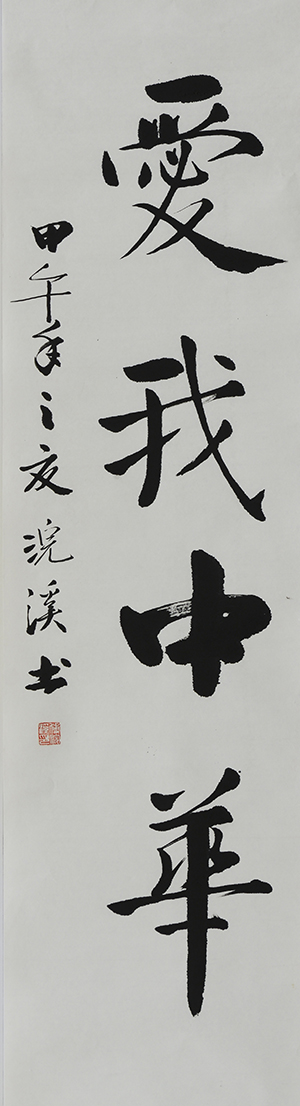 愛我中華
甲午年之夏浣溪书